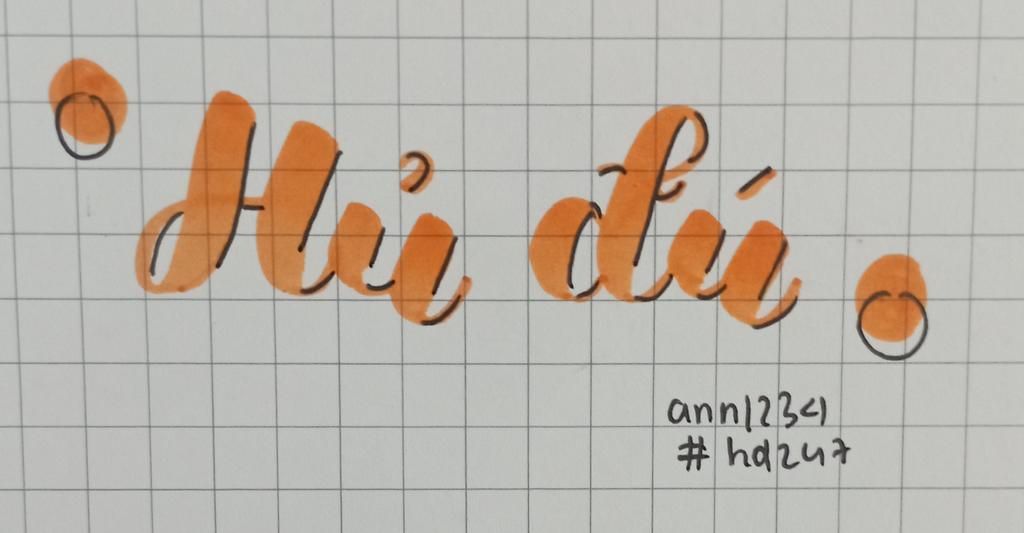 Hủ đú
ann1234
# hd247